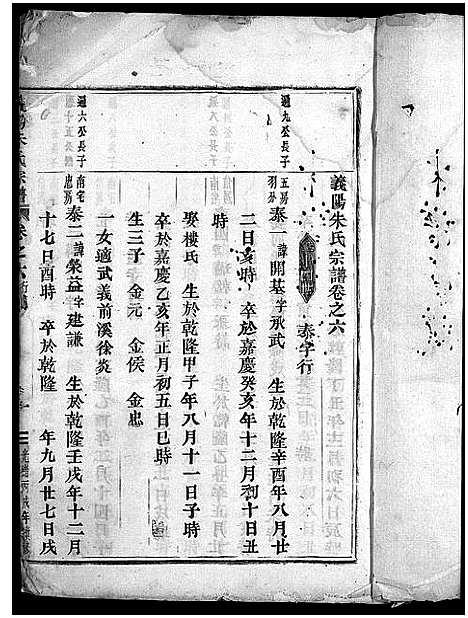 義陽朱氏宗譜卷之六
泰字行
通九公長子 五房
泰一 諱開基字承武 生於乾隆辛酉年八月廿
二日亥時 卒於嘉慶癸亥年十二月初十日丑
時
娶樓氏 生於乾隆甲子年八月十一日子時
卒於嘉慶乙亥年正月初五日巳時
生三子 金元 金侯 金忠
一女適武義前溪徐炎
通六公長子 南宅
泰二 諱榮益字建謙 生於乾隆壬戌年十二月
十七日酉時 卒於乾隆 年九月廿七日戌